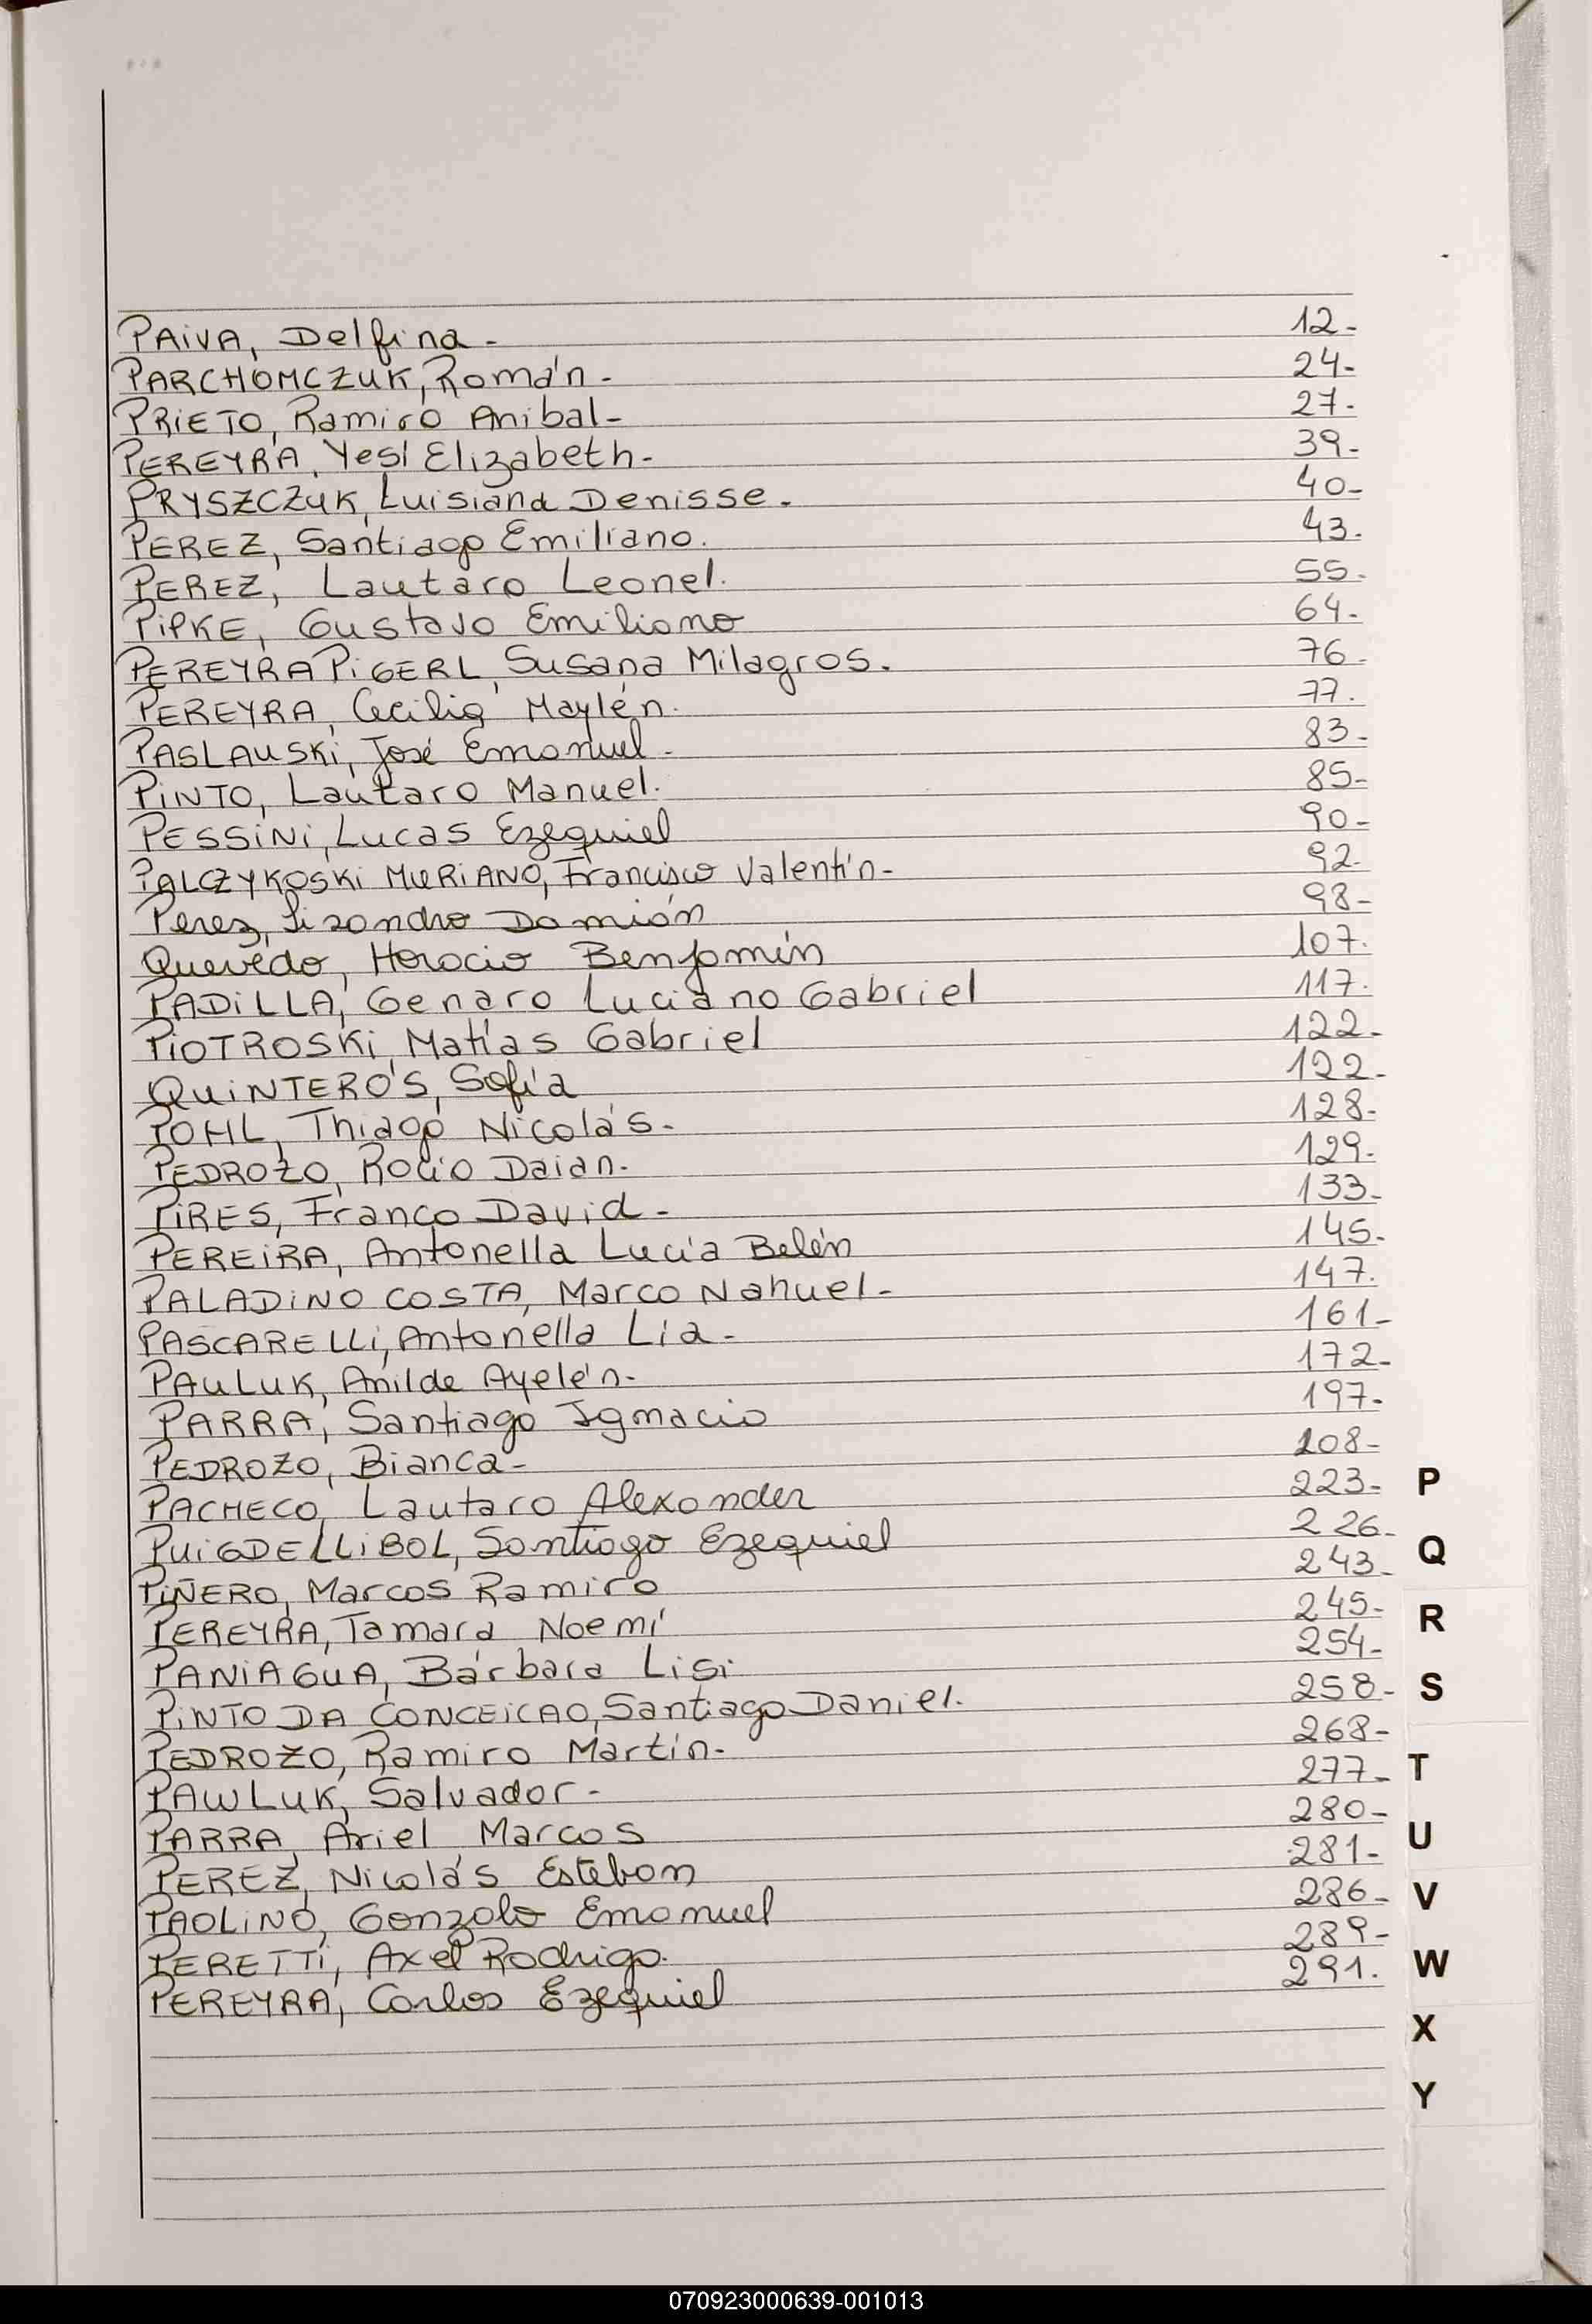 PAIVA, Delfina - 12-
PARCHOMCZUK, Román - 24-
PRIETO, Ramiro Anibal - 27-
PEREYRA, Yesi Elizabeth - 39-
PRYSZCZUK, Luisiana Denisse. 40-
PEREZ, Santiago Emiliano. 43-
PEREZ, Lautaro Leonel. 55-
PIPKE, Gustavo Emiliano 64-
PEREYRA PIGERL, Susana Milagros. 76-
PEREYRA, Cecilia Maylén. 77.
PASLAUSKI, José Emanuel - 83-
PINTO, Lautaro Manuel. 85-
PESSINI, Lucas Ezequiel 90-
PALCZYKOSKI MURIANO, Francisco Valentín - 92-
Perez, Lizandro Damión 98-
Quevedo, Horacio Benjamín 107.
PADILLA, Genaro Luciano Gabriel 117.
PIOTROSKI, Matías Gabriel 122-
QUINTEROS, Sofía 122-
POHL, Thiago Nicolás - 128-
PEDROZO, Rocio Daian. 129-
PIRES, Franco David - 133-
PEREIRA, Antonella Lucía Belén 145-
PALADINO COSTA, Marco Nahuel - 147.
PASCARELLI, Antonella Lia - 161-
PAULUK, Anilde Ayelén. 172-
PARRA, Santiago Ignacio 197-
PEDROZO, Bianca - 208-
PACHECO, Lautaro Alexander 223-
P
PUIGDELLIBOL, Santiago Ezequiel 226-
Q
PIÑERO, Marcos Ramiro 243-
PEREYRA, Tamara Noemí 245-
R
PANIAGUA, Bárbara Lisi 254-
PINTO DA CONCEICAO, Santiago Daniel. 258-
S
PEDROZO, Ramiro Martín. 268-
PAWLUK, Salvador - 277-
T
PARRA, Ariel Marcos 280-
U
PEREZ, Nicolás Esteban 281-
PAOLINO, Gonzalo Emanuel 286-
V
PERETTI, Axel Rodrigo. 289-
PEREYRA, Carlos Ezequiel 291.
W
X
Y
070923000639-001013